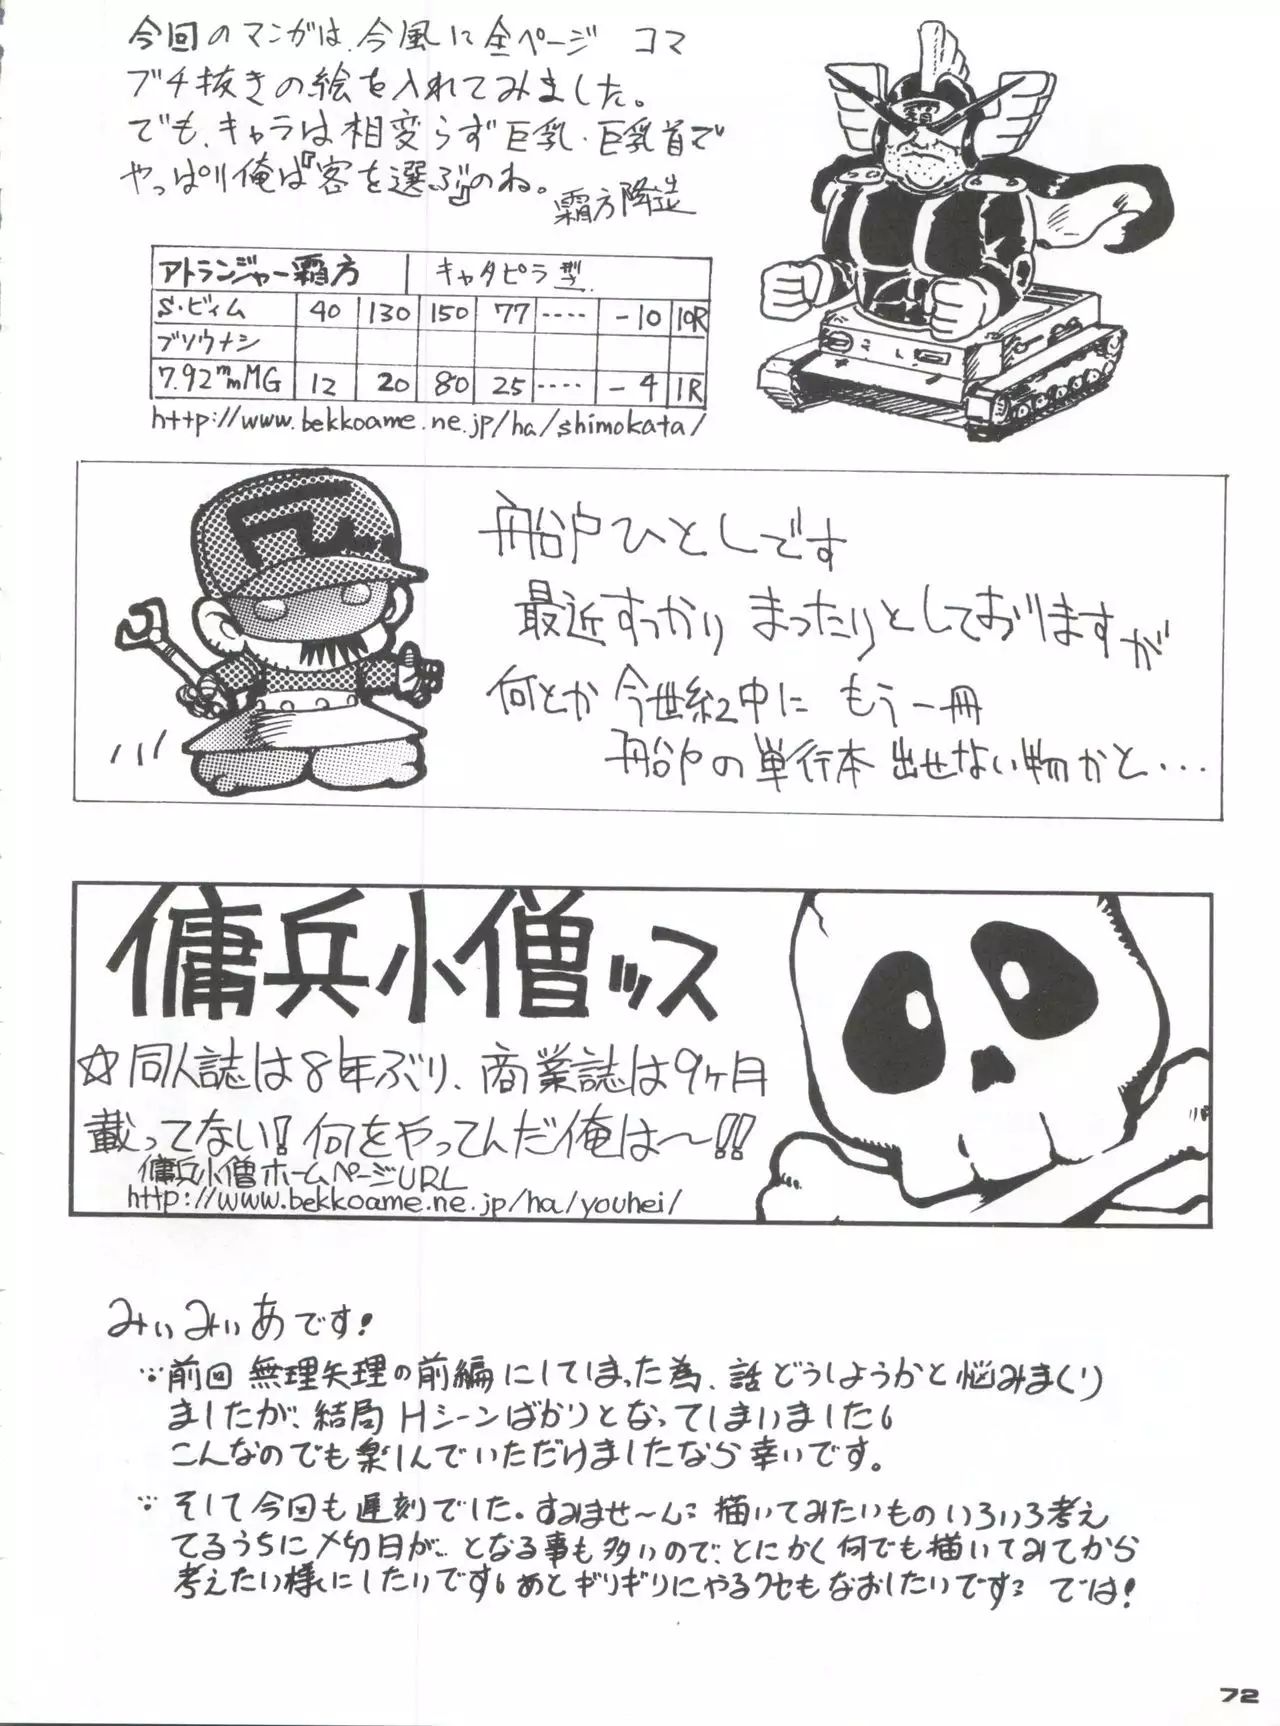 今回のマンガは、今風に全ページ コマ
ブチ抜きの絵を入れてみました。
でも、キャラは相変らず巨乳・巨乳首で
やっぱり俺は『客を選ぶ』のね。
霜方降造
霸
アトランジャー霜方 キャタピラ型
S・ビィム 40 130 150 77 ‥‥ -10 10R
ブソウナシ
7.92mmMG 12 20 80 25 ‥‥ -4 1R
http://www.bekkoame.ne.jp/ha/shimokata/
船戸ひとしです
最近すっかり まったりとしておりますが
何とか 今世紀中に もう一冊
船戸の単行本 出せない物かと・・・
傭兵小僧ッス
☆同人誌は8年ぶり、商業誌は9ヶ月
載ってない!何をやってんだ俺は〜!!
傭兵小僧ホームページURL
http://www.bekkoame.ne.jp/ha/youhei/
みぃみぃあです!
前回 無理矢理の前編にしてしまった為、話どうしようかと悩みまくり
ましたが、結局 Hシーンばかりとなってしまいました。
こんなのでも楽しんでいただけましたなら幸いです。
そして今回も遅刻でした。すみませ〜ん 描いてみたいものいろいろ考え
てるうちに〆切日が… となる事も多いので、とにかく何でも描いてみてから
考えたい様にしたいです。あとギリギリにやるクセもなおしたいです では!
72